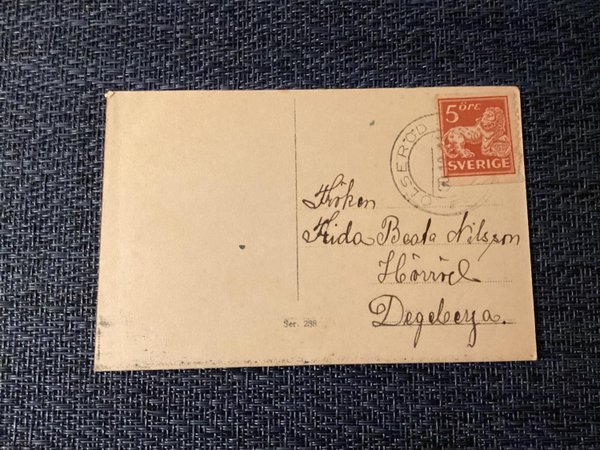 5 ÖRE
SVERIGE
OLSERÖD
Fröken
Frida Beata Nilsson
Hörröd
Degeberga.
Ser. 288